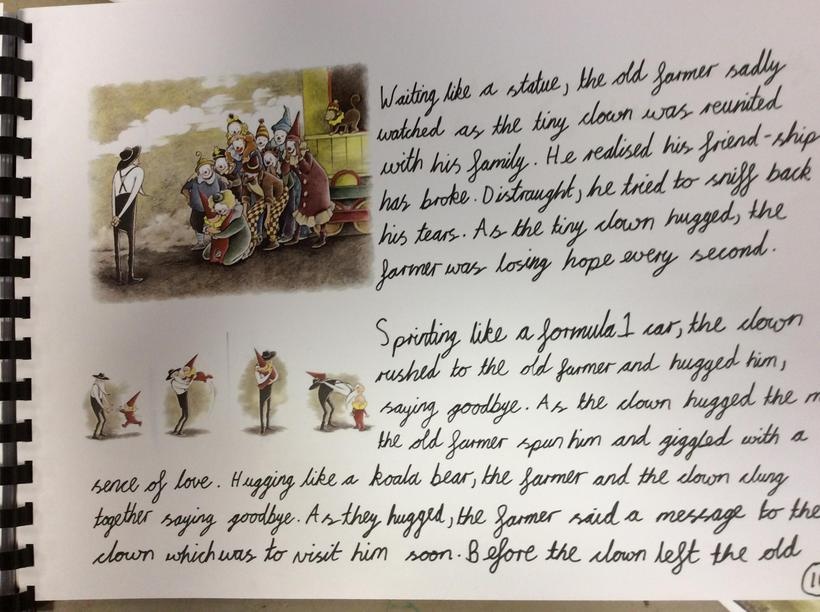 Waiting like a statue, the old farmer sadly
watched as the tiny clown was reunited
with his family. He realised his friend-ship
has broke. Distraught, he tried to sniff back
his tears. As the tiny clown hugged, the
farmer was losing hope every second.
Sprinting like a formula 1 car, the clown
rushed to the old farmer and hugged him,
saying goodbye. As the clown hugged the
the old farmer spun him and giggled with a
sence of love. Hugging like a koala bear, the farmer and the clown clung
together saying goodbye. As they hugged, the farmer said a message to the
clown which was to visit him soon. Before the clown left the old